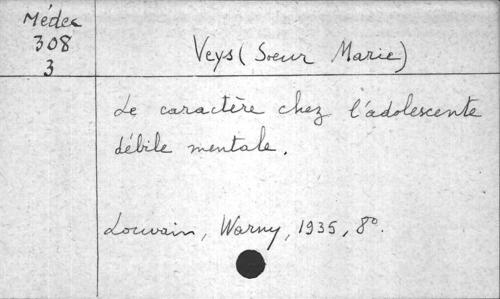 Médec
308
3
Veys (Soeur Marie)
Le caractère chez l'adolescente
débile mentale.
Louvain, Warny, 1935, 8º.